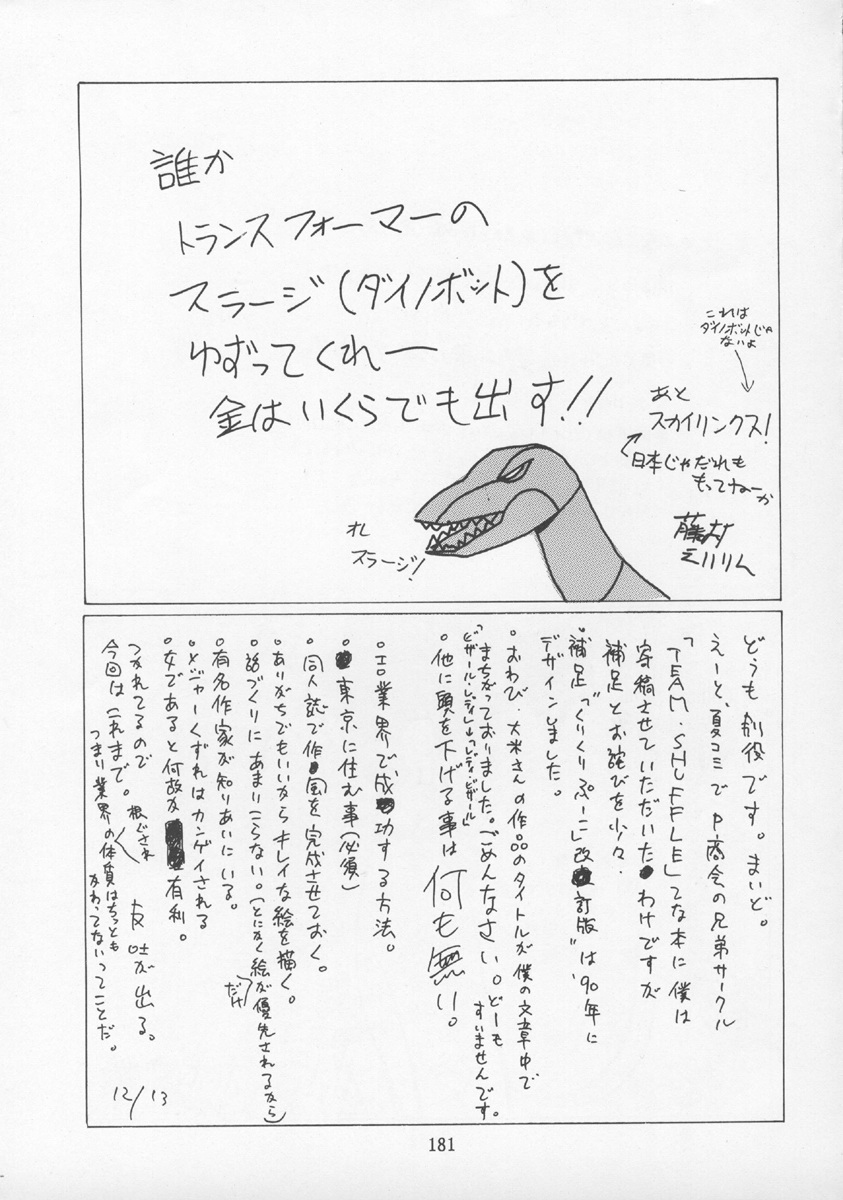 誰か
トランスフォーマーの
スラージ(ダイノボット)を
ゆずってくれー
金はいくらでも出す!!
これは
ダイノボットじゃ
ないよ
あと
スカイリンクス!
日本じゃだれも
もってねーか
オレ
スラージ!
どうも 削役です。まいど。
えーと、夏コミでP商会の兄弟サークル
「TEAM・SHUFFLE」てな本に僕は
寄稿させていただいたわけですが
補足とお詫びを少々.
補足 "「くりくりぷーにー」改訂版"は'90年に
デザインしました。
・おわび・大米さんの作品のタイトルが僕の文章中で
まちがっておりました。ごめんなさい。どーも
すいませんです。
・他に頭を下げる事は何も無い。
・エロ業界で、成功する方法。
・東京に住む事(必須)
・同人誌で作風を完成させておく。
・ありがちでもいいからキレイな絵を描く。
・話づくりにあまりこらない。(とにかく絵だけが優先されるから)
・有名作家が知りあいにいる。
・メジャーくずれはカンゲイされる
・女であると何故か有利。
つかれてるので
今回はこれまで。
根ざされ
反吐が出る。
つまり業界の体質はちっとも
かわってないってことだ。
12/13
181